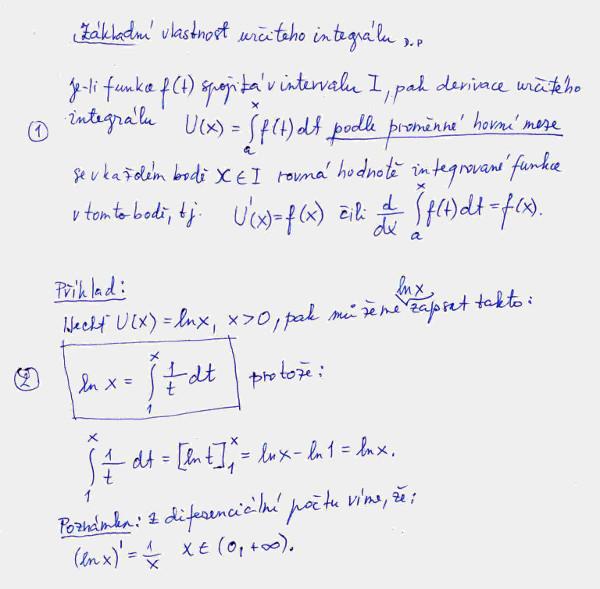 Základní vlastnost určitého integrálu
Je-li funkce f(t) spojitá v intervalu I, pak derivace určitého
① integrálu U(x) = ∫ₐˣ f(t) dt podle proměnné horní meze
se v každém bodě x ∈ I rovná hodnotě integrované funkce
v tomto bodě, tj. U'(x) = f(x) čili d/dx ∫ₐˣ f(t) dt = f(x).
Příklad:
Nechť U(x) = ln x, x > 0, pak můžeme ln x zapsat takto:
② ln x = ∫₁ˣ 1/t dt protože:
∫₁ˣ 1/t dt = [ln t]₁ˣ = ln x – ln 1 = ln x.
Poznámka: z diferenciální počtu víme, že:
(ln x)' = 1/x x ∈ (0, +∞).